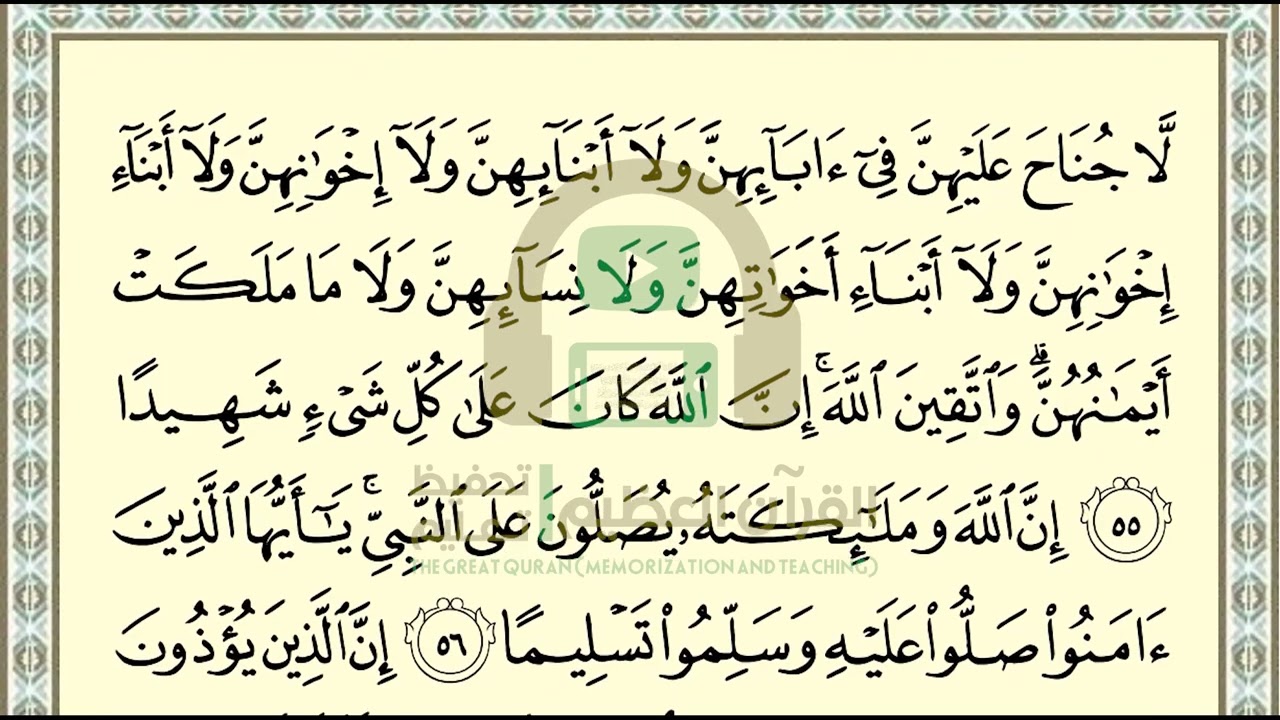 لَّا جُنَاحَ عَلَيْهِنَّ فِىٓ ءَابَآئِهِنَّ وَلَآ أَبْنَآئِهِنَّ وَلَآ إِخْوَٰنِهِنَّ وَلَآ أَبْنَآءِ
إِخْوَٰنِهِنَّ وَلَآ أَبْنَآءِ أَخَوَٰتِهِنَّ وَلَا نِسَآئِهِنَّ وَلَا مَا مَلَكَتْ
أَيْمَٰنُهُنَّ ۗ وَٱتَّقِينَ ٱللَّهَ ۚ إِنَّ ٱللَّهَ كَانَ عَلَىٰ كُلِّ شَىْءٍ شَهِيدًا
٥٥ إِنَّ ٱللَّهَ وَمَلَٰٓئِكَتَهُۥ يُصَلُّونَ عَلَى ٱلنَّبِىِّ ۚ يَٰٓأَيُّهَا ٱلَّذِينَ
ءَامَنُوا۟ صَلُّوا۟ عَلَيْهِ وَسَلِّمُوا۟ تَسْلِيمًا ٥٦ إِنَّ ٱلَّذِينَ يُؤْذُونَ
القرآن العظيم | تحفيظ تعليم
THE GREAT QURAN (MEMORIZATION AND TEACHING)